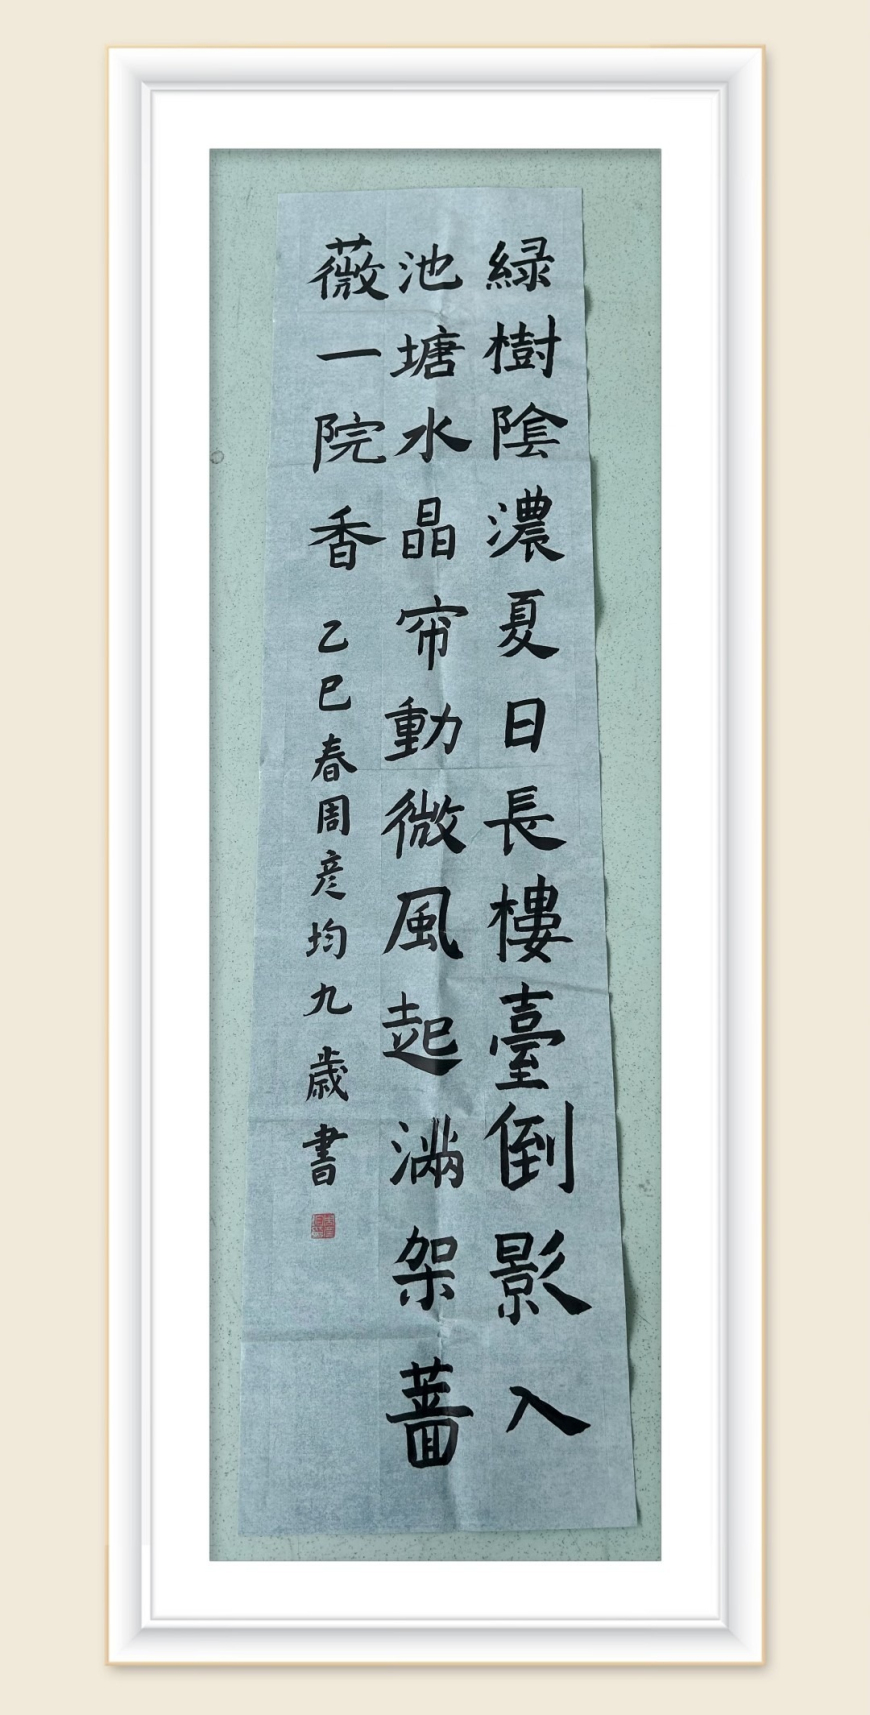 緑樹陰濃夏日長樓臺倒影入
池塘水晶帘動微風起滿架薔
薇一院香 乙巳春周彦均九歲書